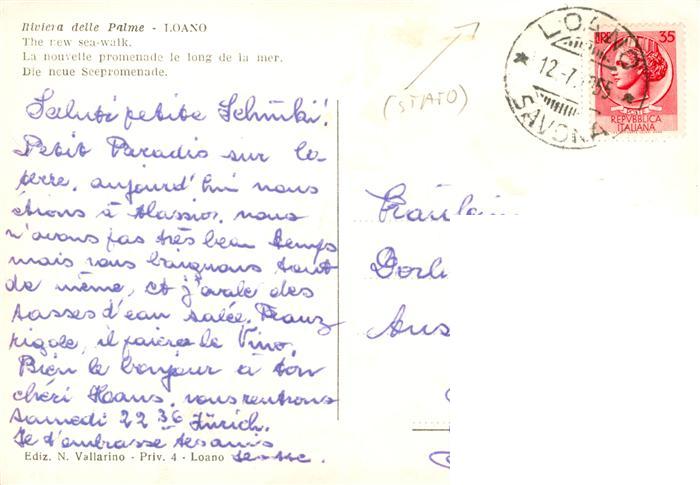 Riviera delle Palme - LOANO
The new sea-walk.
La nouvelle promenade le long de la mer.
Die neue Seepromenade.
(STATO)
LOANO
12-7
55
SAVONA
LIRE 35
POSTE
REPVBBLICA
ITALIANA
Saluti petite Schnuki!
Petit Paradis sur la
terre, aujourd'hui nous
étions à Alassio, nous
n'avons pas très beau temps
mais nous baignons tout
de même, et j'avale des
tasses d'eau salée. Franz
rigole, il paiera le Vino.
Bien le bonjour à ton
chéri Haans, nous rentrons
Samedi 22 36 Zürich.
Je t'embrasse tes amis
Fräulein
Dorli
Aus
Ediz. N. Vallarino - Priv. 4 - Loano